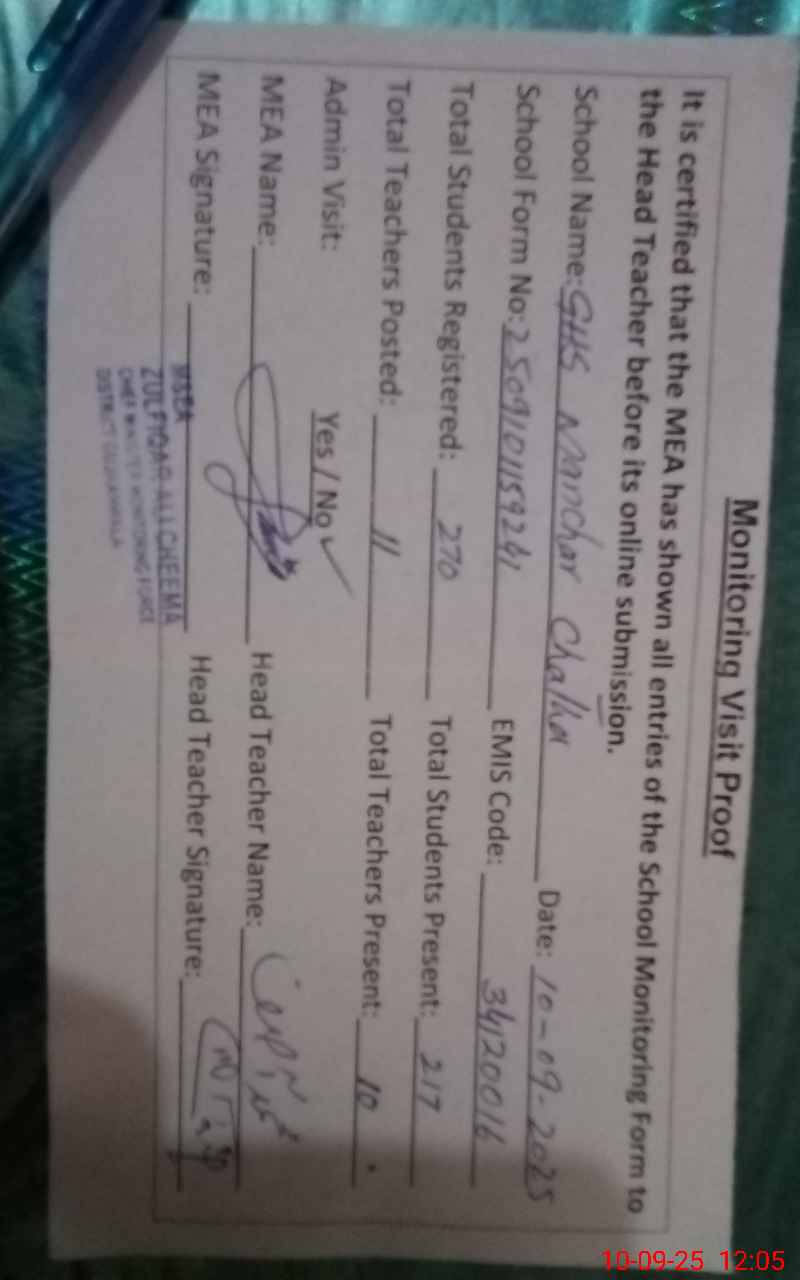 Monitoring Visit Proof
It is certified that the MEA has shown all entries of the School Monitoring Form to
the Head Teacher before its online submission.
School Name: GHS Manchar Chatha Date: 10-09-2025
School Form No: 2509101159261 EMIS Code: 34120016
Total Students Registered: 270 Total Students Present: 217
Total Teachers Posted: 11 Total Teachers Present: 10
Admin Visit: Yes / No ✓
MEA Name: Head Teacher Name:
MEA Signature: Head Teacher Signature:
M&EA
ZULFIQAR ALI CHEEMA
CHIEF MINISTER MONITORING FORCE
DISTRICT GUJRANWALA
10-09-25 12:05